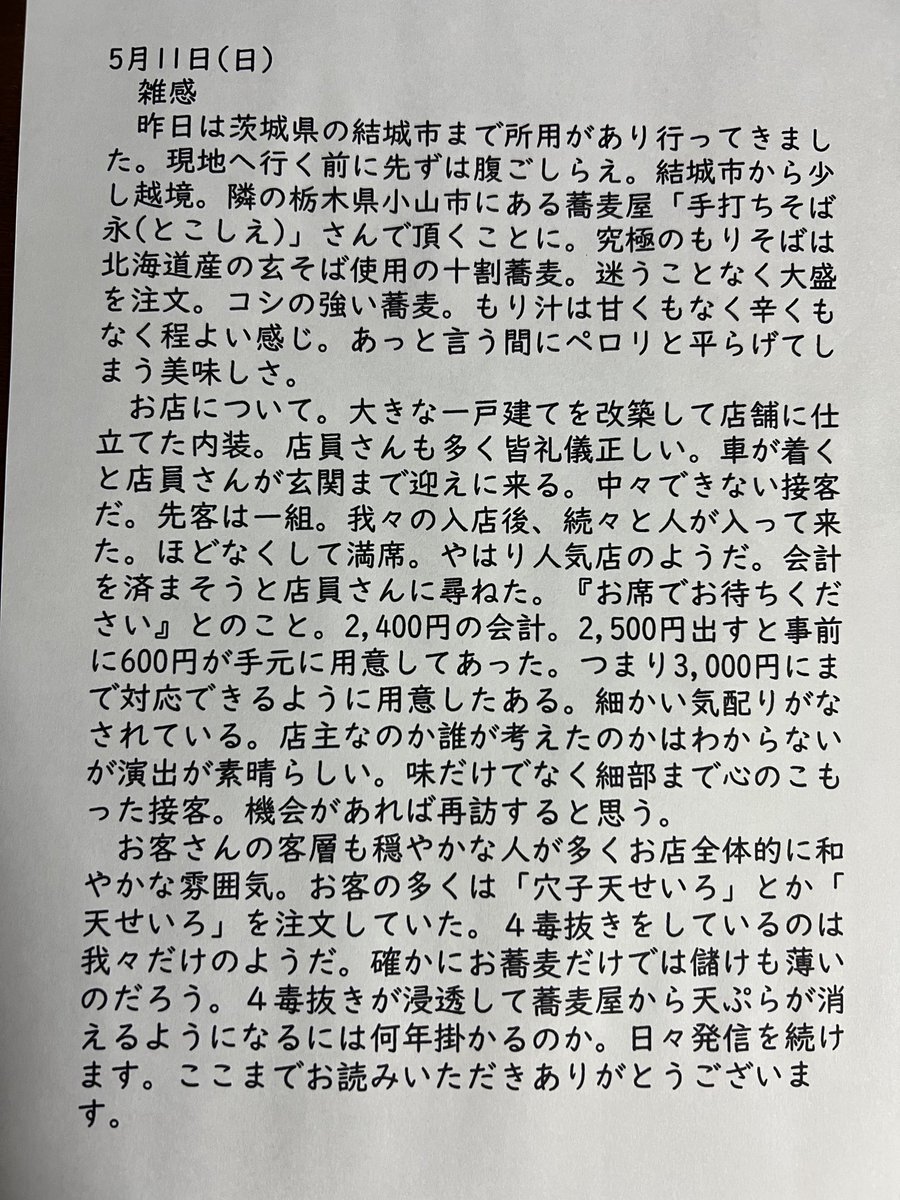 5月11日(日)
雑感
昨日は茨城県の結城市まで所用があり行ってきまし
た。現地へ行く前に先ずは腹ごしらえ。結城市から少
し越境。隣の栃木県小山市にある蕎麦屋「手打ちそば
永(とこしえ)」さんで頂くことに。究極のもりそばは
北海道産の玄そば使用の十割蕎麦。迷うことなく大盛
を注文。コシの強い蕎麦。もり汁は甘くもなく辛くも
なく程よい感じ。あっと言う間にペロリと平らげてし
まう美味しさ。
お店について。大きな一戸建てを改築して店舗に仕
立てた内装。店員さんも多く皆礼儀正しい。車が着く
と店員さんが玄関まで迎えに来る。中々できない接客
だ。先客は一組。我々の入店後、続々と人が入って来
た。ほどなくして満席。やはり人気店のようだ。会計
を済まそうと店員さんに尋ねた。『お席でお待ちくだ
さい』とのこと。2,400円の会計。2,500円出すと事前
に600円が手元に用意してあった。つまり3,000円にま
で対応できるように用意したある。細かい気配りがな
されている。店主なのか誰が考えたのかはわからない
が演出が素晴らしい。味だけでなく細部まで心のこも
った接客。機会があれば再訪すると思う。
お客さんの客層も穏やかな人が多くお店全体的に和
やかな雰囲気。お客の多くは「穴子天せいろ」とか「
天せいろ」を注文していた。４毒抜きをしているのは
我々だけのようだ。確かにお蕎麦だけでは儲けも薄い
のだろう。４毒抜きが浸透して蕎麦屋から天ぷらが消
えるようになるには何年掛かるのか。日々発信を続け
ます。ここまでお読みいただきありがとうございま
す。